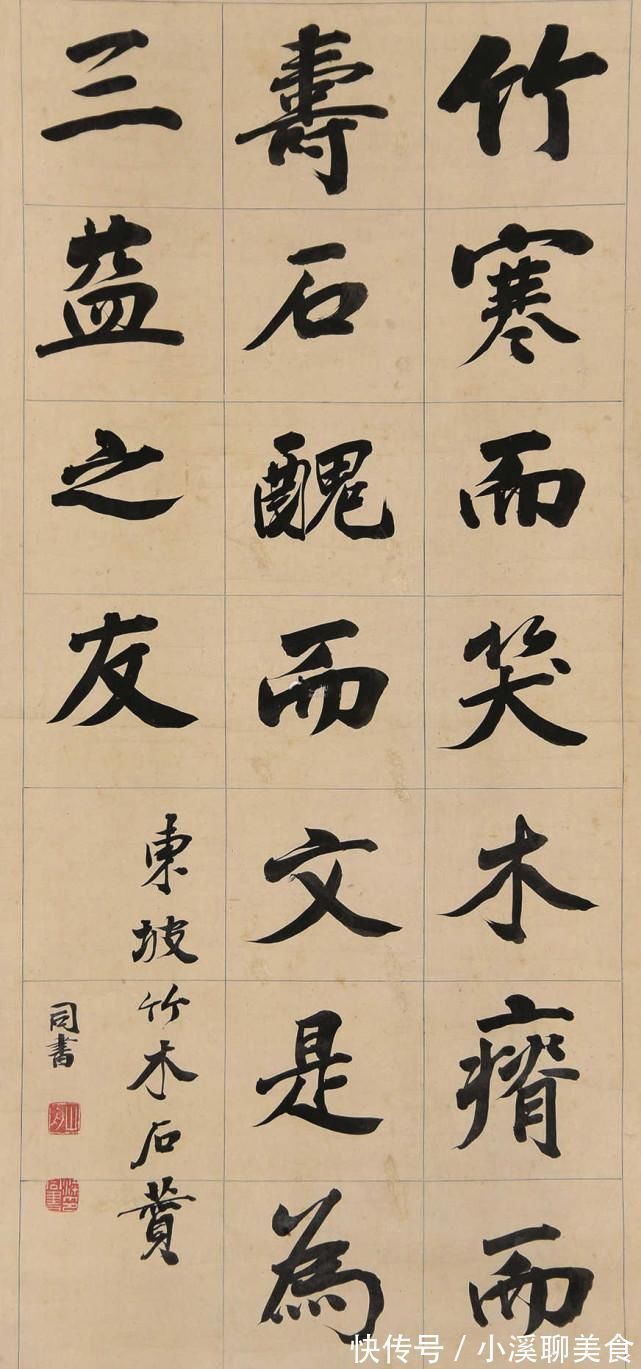 竹寒而笑木瘠而
壽石醜而文是為
三益之友
東坡竹木石贊
同書
快传号 / 小溪聊美食